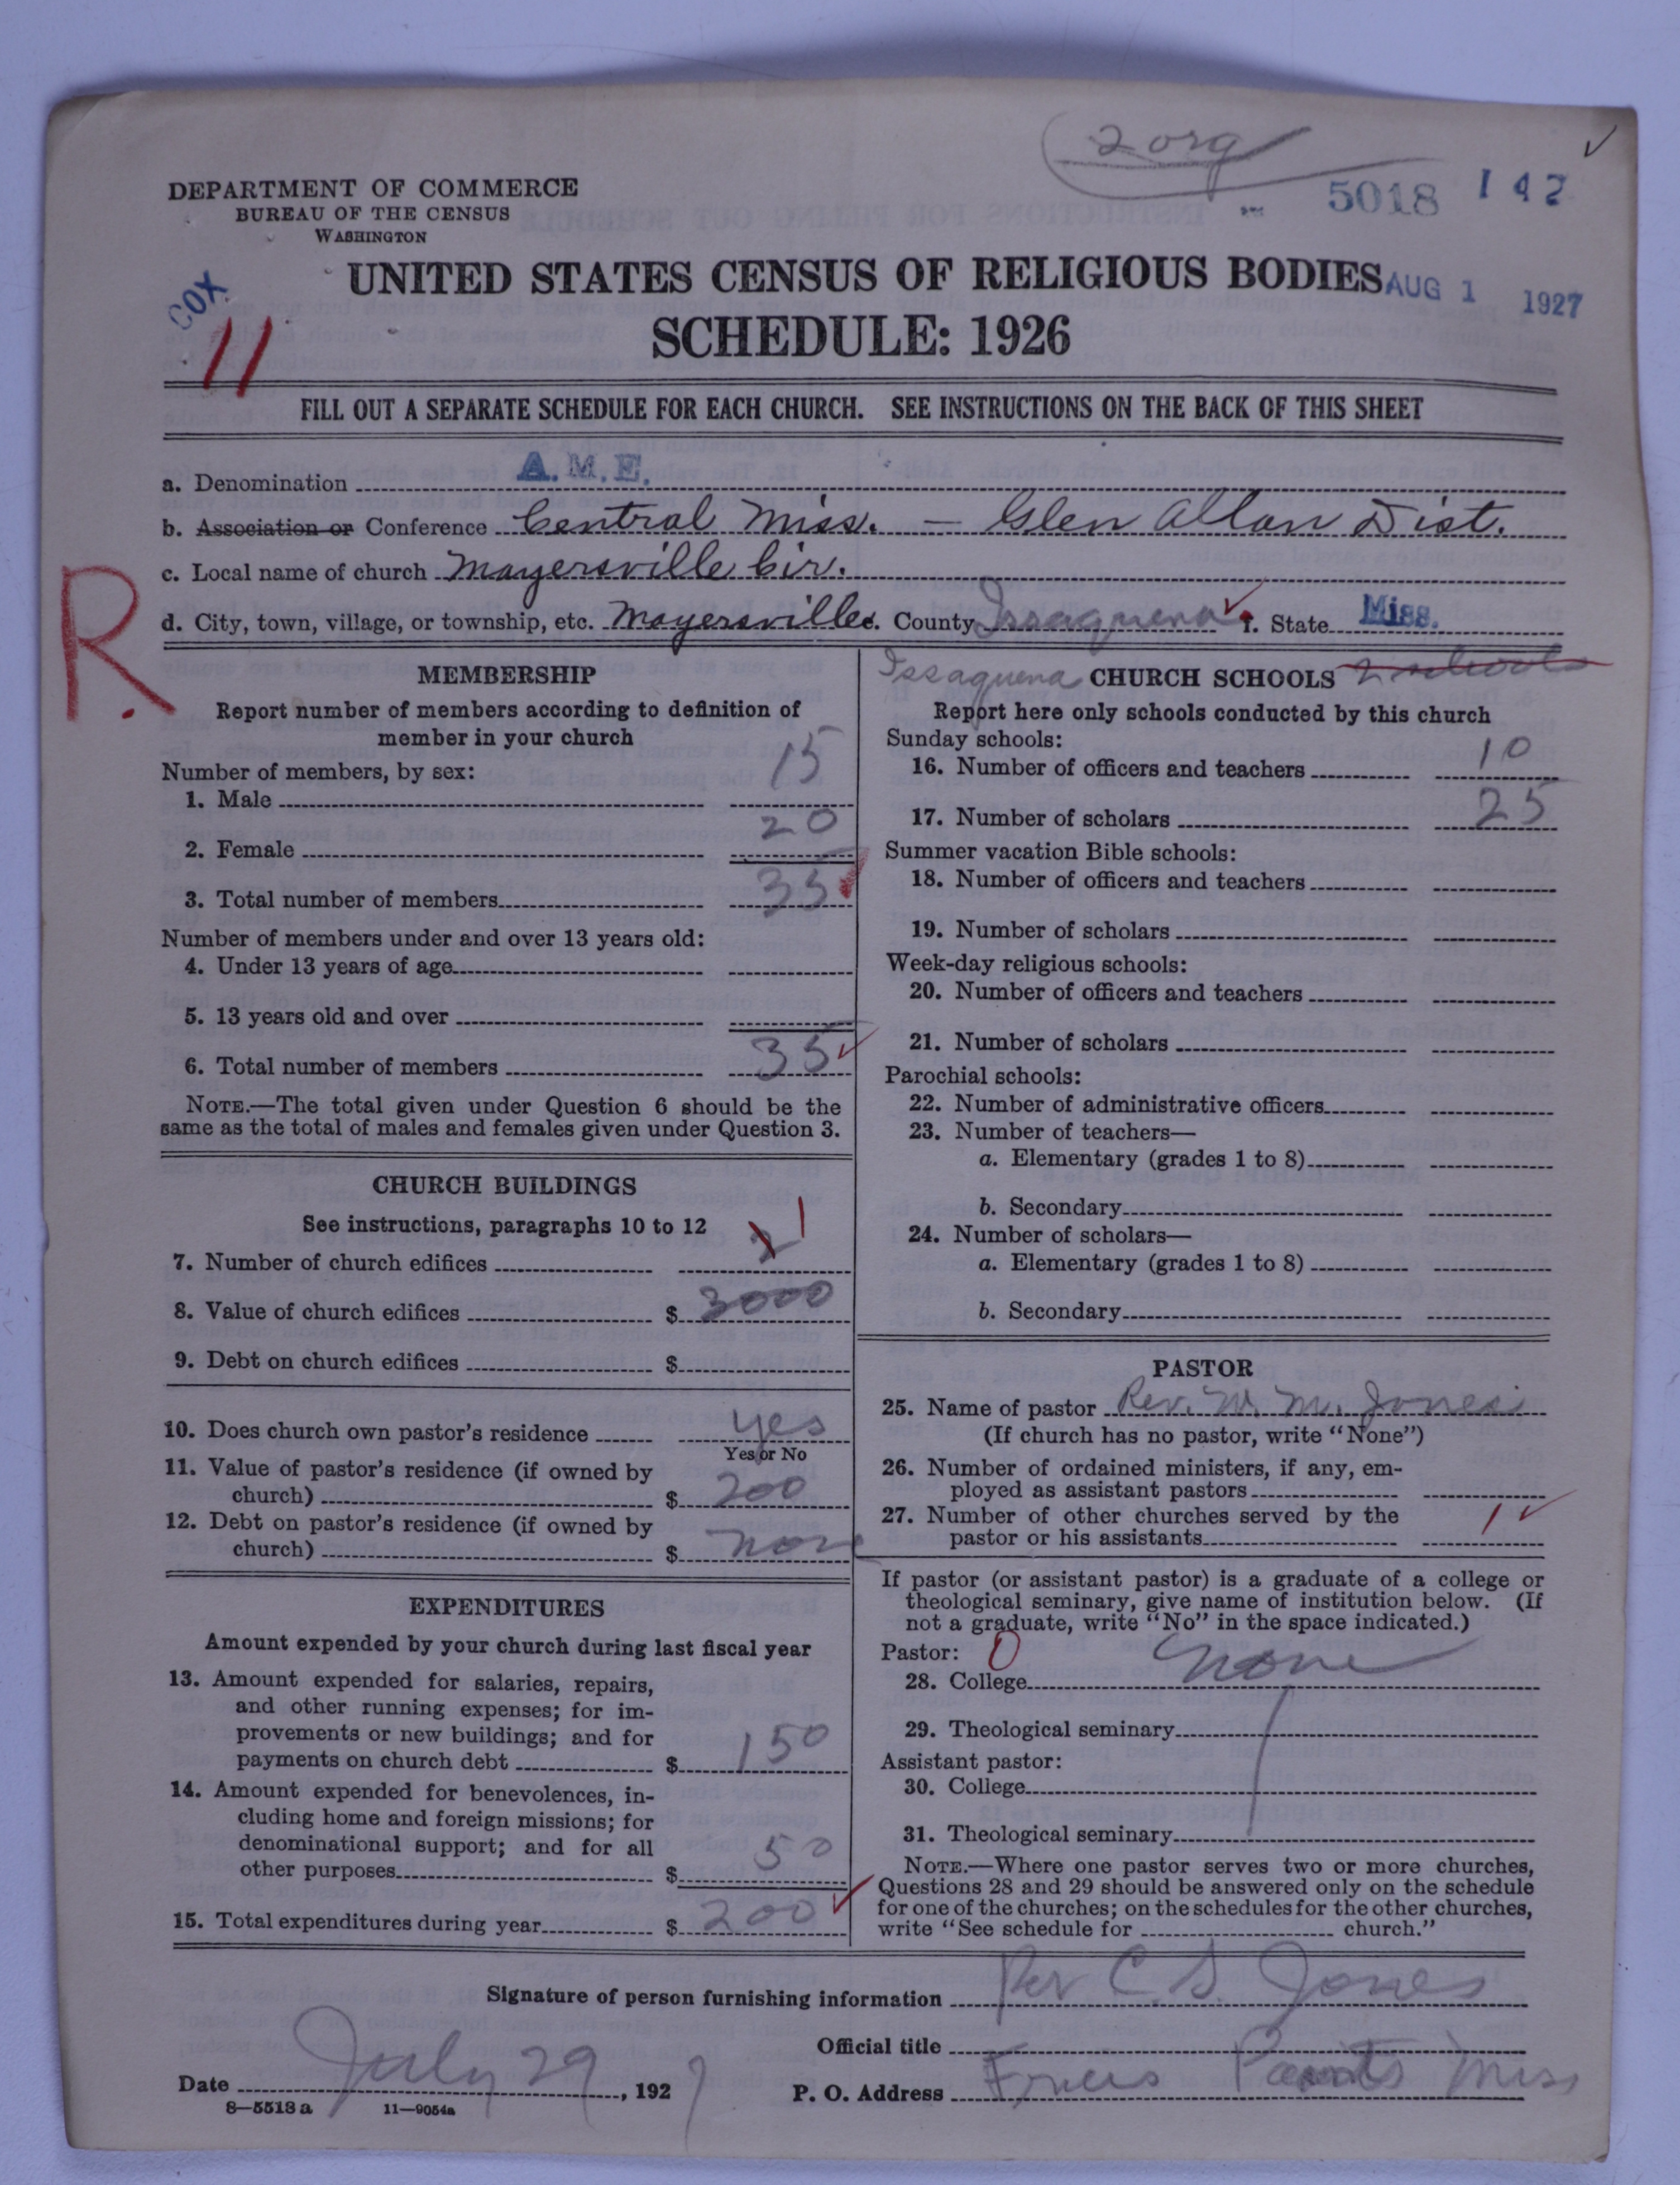 2 org
5018 142
DEPARTMENT OF COMMERCE
BUREAU OF THE CENSUS
WASHINGTON
COX
11
UNITED STATES CENSUS OF RELIGIOUS BODIES AUG 1 1927
SCHEDULE: 1926
FILL OUT A SEPARATE SCHEDULE FOR EACH CHURCH. SEE INSTRUCTIONS ON THE BACK OF THIS SHEET
a. Denomination A.M.E.
b. Association or Conference Central Miss. — Glen Allan Dist.
c. Local name of church Mayersville Cir.
R.
d. City, town, village, or township, etc. Mayersville e. County Issaquena f. State Miss.
MEMBERSHIP
Report number of members according to definition of
member in your church
Number of members, by sex:
1. Male 15
2. Female 20
3. Total number of members 35
Number of members under and over 13 years old:
4. Under 13 years of age
5. 13 years old and over
6. Total number of members 35
NOTE.—The total given under Question 6 should be the
same as the total of males and females given under Question 3.
CHURCH BUILDINGS
See instructions, paragraphs 10 to 12
7. Number of church edifices 2 1
8. Value of church edifices $ 3000
9. Debt on church edifices $
10. Does church own pastor's residence yes
Yes or No
11. Value of pastor's residence (if owned by
church) $ 200
12. Debt on pastor's residence (if owned by
church) $ none
EXPENDITURES
Amount expended by your church during last fiscal year
13. Amount expended for salaries, repairs,
and other running expenses; for im-
provements or new buildings; and for
payments on church debt $ 150
14. Amount expended for benevolences, in-
cluding home and foreign missions; for
denominational support; and for all
other purposes $ 50
15. Total expenditures during year $ 200
Issaquena CHURCH SCHOOLS 2 schools
Report here only schools conducted by this church
Sunday schools:
16. Number of officers and teachers 10
17. Number of scholars 25
Summer vacation Bible schools:
18. Number of officers and teachers
19. Number of scholars
Week-day religious schools:
20. Number of officers and teachers
21. Number of scholars
Parochial schools:
22. Number of administrative officers
23. Number of teachers—
a. Elementary (grades 1 to 8)
b. Secondary
24. Number of scholars—
a. Elementary (grades 1 to 8)
b. Secondary
PASTOR
25. Name of pastor Rev. W. M. Jones
(If church has no pastor, write "None")
26. Number of ordained ministers, if any, em-
ployed as assistant pastors
27. Number of other churches served by the
pastor or his assistants 1
If pastor (or assistant pastor) is a graduate of a college or
theological seminary, give name of institution below. (If
not a graduate, write "No" in the space indicated.)
Pastor: 0
28. College none
29. Theological seminary
Assistant pastor:
30. College
31. Theological seminary
NOTE.—Where one pastor serves two or more churches,
Questions 28 and 29 should be answered only on the schedule
for one of the churches; on the schedules for the other churches,
write "See schedule for church."
Signature of person furnishing information Rev C. S. Jones
Official title
Date July 29, 1927 P. O. Address Miss
8—5518a 11—9054a